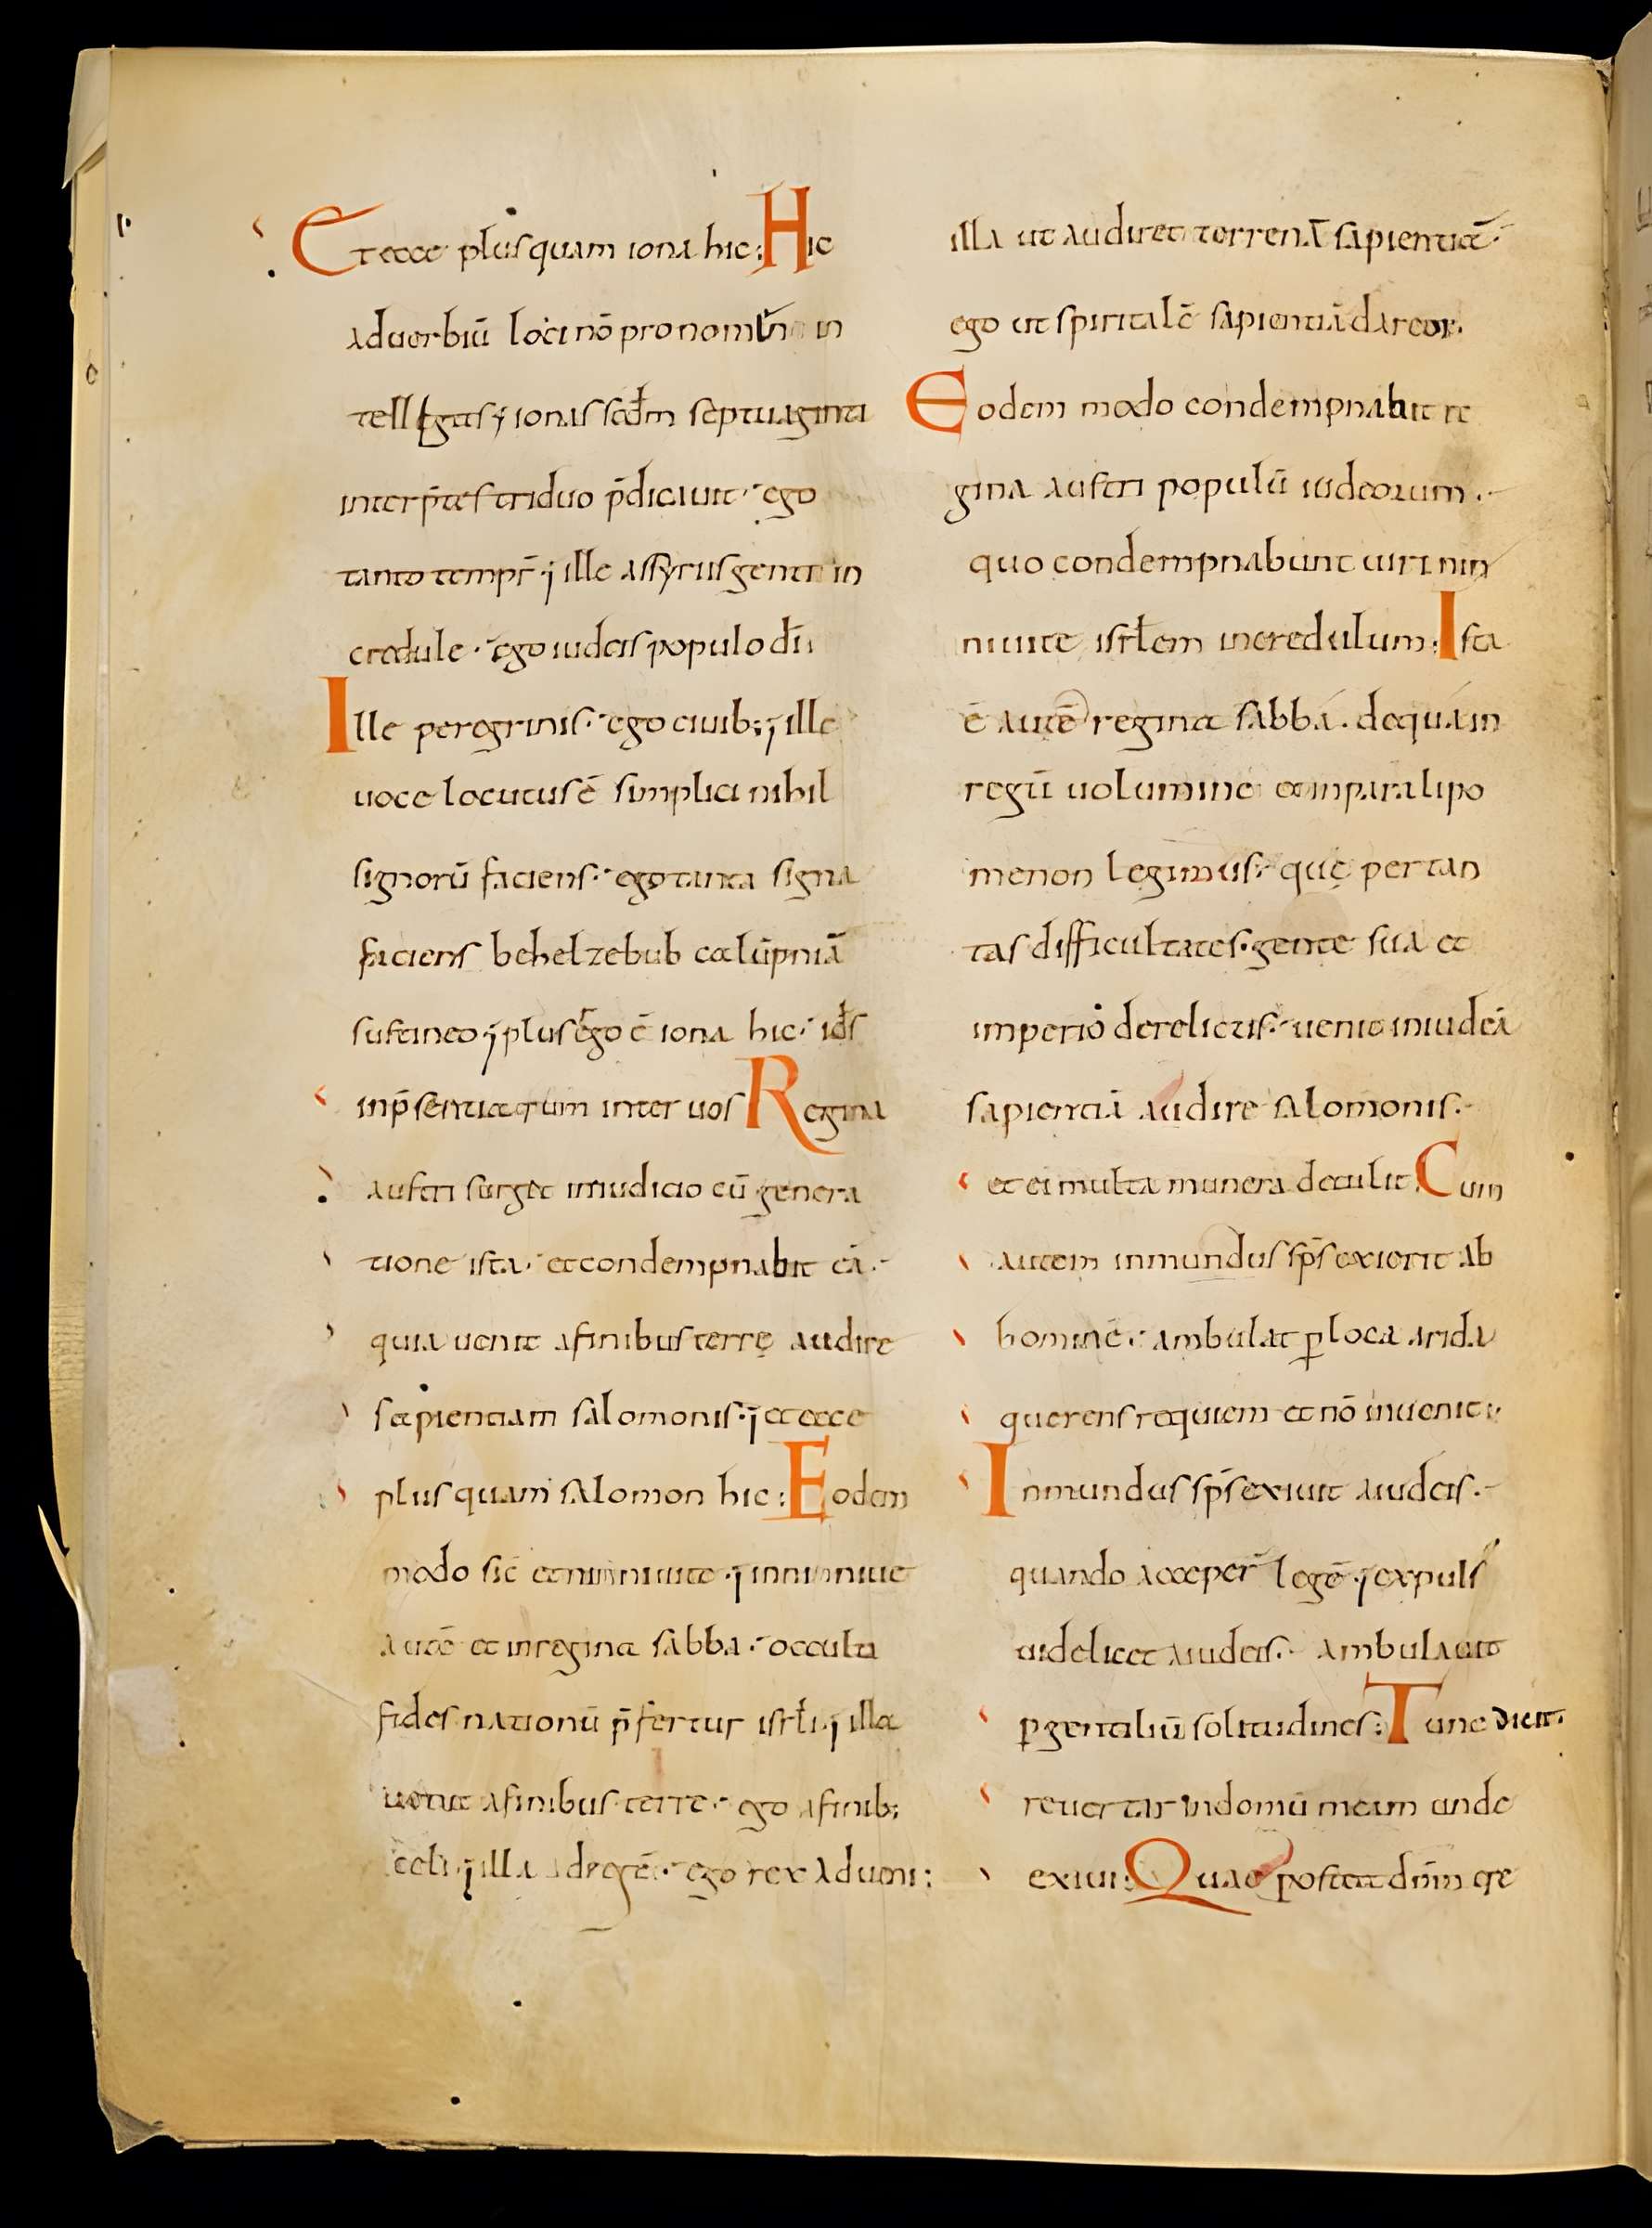 Et ecce plus quam iona hic: Hic
aduerbiū loci nō pronomīn in
tellegas; ionas scdm septuaginta
interp̄tes triduo p̄dicauit · ego
tanto tempr̄ · ; ille assyrus genti in
credule · ego iudeis populo dī
Ille peregrinis · ego ciuib; ; ille
uoce locutus ē simplici nihil
signorū faciens · ego tanta signa
faciens behelzebub calūpniā
sustineo ; plus ergo ē iona hic ·
inp̄sentiarum inter uos Regina
austri surget iniudicio cū genera
tione ista · et condempnabit eā ·
quia uenit afinibus terrę audire
sapientiam salomonis · ; et ecce
plus quam salomon hic : Eodem
modo sic̄ et ; in niniue
autē et in regina sabba · occulta
fides nationū p̄fertur isrl̄i · ; illa
uenit afinibus terre · ego afinib;
celi · ; illa · ego rex adueni :
illa ut audiret terrenā sapientiā ·
ego ut spiritalē sapientiā darem ·
Eodem modo condempnabit re
gina austri populū iudeorum ·
quo condempnabunt uiri nin
niuite isrl̄em incredulum : Ista
ē autē regina sabba · dequa in
regū uolumine et inparalipo
menon legimus · quę per tan
tas difficultates · gente sua et
imperio derelictis · uenit iniudeā
sapientiā audire salomonis ·
et ei multa munera detulit : Cum
autem inmundus sp̄s exierit ab
homine · ambulat p loca arida
querens requiem et nō inuenit :
Inmundus sp̄s exiuit aiudeis ·
quando acceper̄ legē · ; expuls
uidelicet aiudeis · ambulauit
p gentiliū solitudines : Tunc dicit ·
reuertar indomū meam unde
exiui : Quae postea dn̄m cre